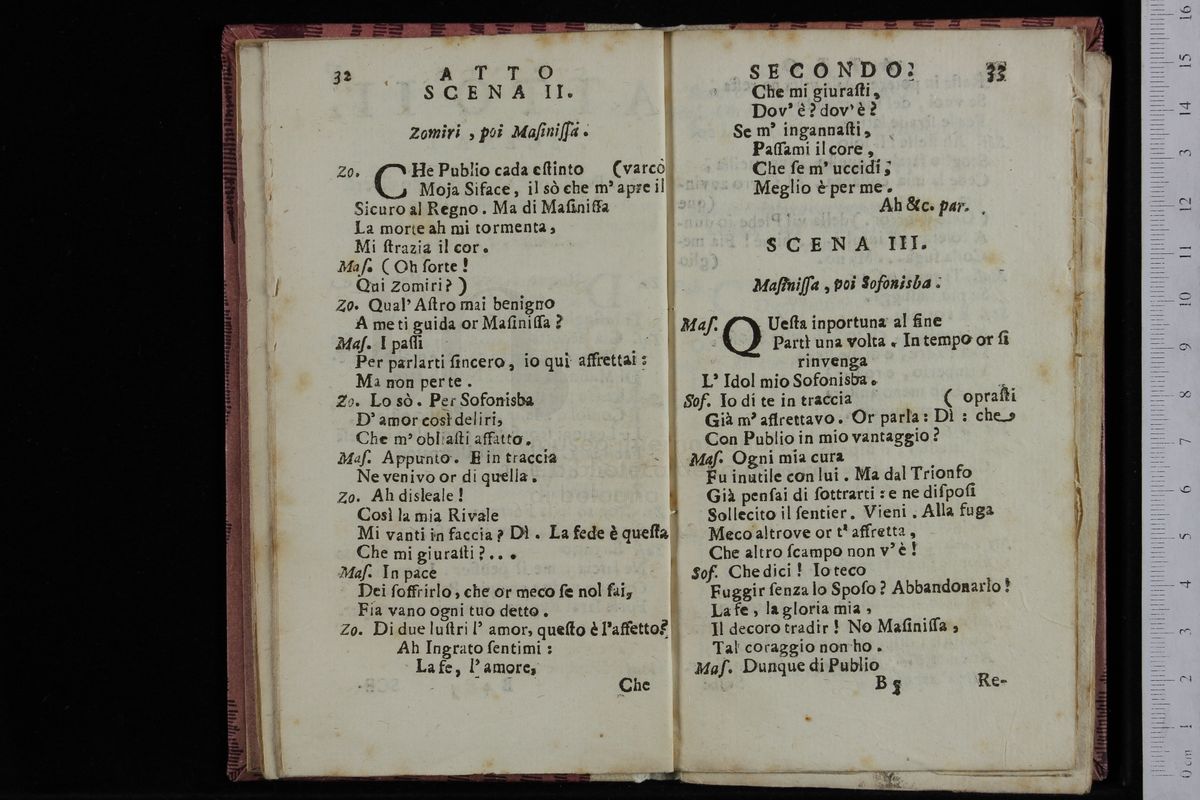 32
ATTO
SCENA II.
Zomiri , poi Maſiniſſa .
Zo. CHe Publio cada eſtinto (varcò
Moja Siface, il sò che m' apre il
Sicuro al Regno. Ma di Maſiniſſa
La morte ah mi tormenta,
Mi ſtrazia il cor.
Maſ. (Oh ſorte!
Qui Zomiri?)
Zo. Qual' Aſtro mai benigno
A me ti guida or Maſiniſſa?
Maſ. I paſſi
Per parlarti ſincero, io quì affrettai:
Ma non per te.
Zo. Lo sò. Per Sofonisba
D' amor così deliri,
Che m' obliaſti affatto.
Maſ. Appunto. E in traccia
Ne venivo or di quella.
Zo. Ah disleale!
Così la mia Rivale
Mi vanti in faccia? Dì. La fede è queſta
Che mi giuraſti?...
Maſ. In pace
Dei ſoffrirlo, che or meco ſe nol fai,
Fia vano ogni tuo detto.
Zo. Di due luſtri l' amor, queſto è l'affetto?
Ah Ingrato ſentimi:
La fe, l'amore,
Che
SECONDO. 33
Che mi giuraſti,
Dov' è? dov' è?
Se m' ingannaſti,
Paſſami il core,
Che ſe m' uccidi;
Meglio è per me.
Ah &c. par.
SCENA III.
Maſiniſſa , poi Sofonisba .
Maſ. QUeſta inportuna al fine
Partì una volta. In tempo or ſi
rinvenga
L' Idol mio Sofonisba.
Sof. Io di te in traccia ( opraſti
Già m' affrettavo. Or parla: Dì : che
Con Publio in mio vantaggio?
Maſ. Ogni mia cura
Fu inutile con lui. Ma dal Trionfo
Già penſai di ſottrarti: e ne diſpoſi
Sollecito il ſentier. Vieni. Alla fuga
Meco altrove or t' affretta,
Che altro ſcampo non v' è!
Sof. Che dici! Io teco
Fuggir ſenza lo Spoſo? Abbandonarlo!
La fe, la gloria mia,
Il decoro tradir! No Maſiniſſa,
Tal coraggio non ho.
Maſ. Dunque di Publio
B 5 Re-
0 cm 1 2 3 4 5 6 7 8 9 10 11 12 13 14 15 16